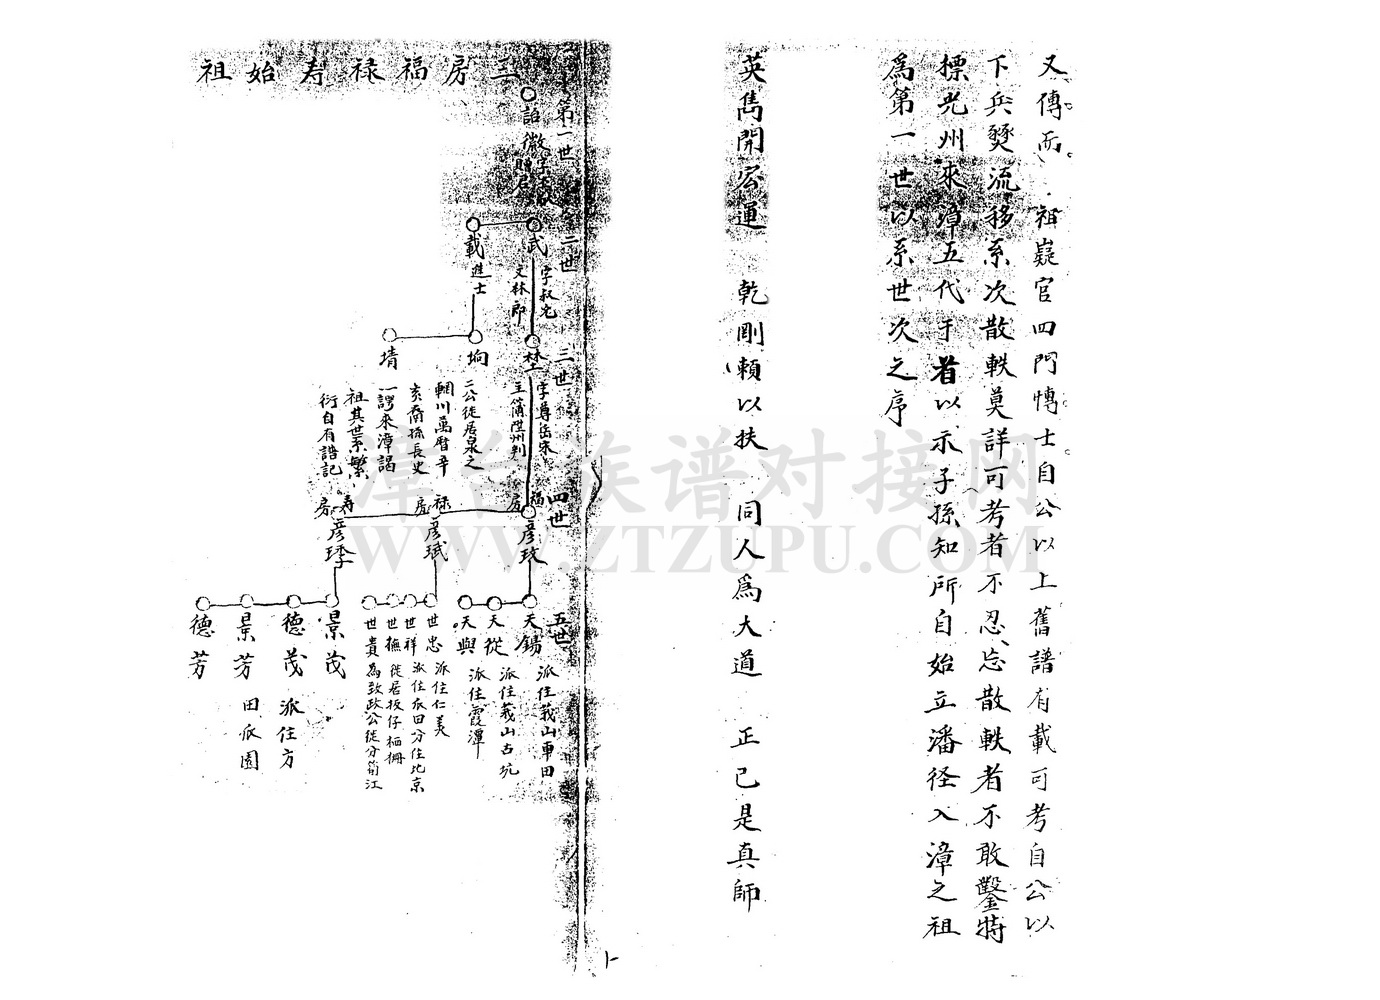 又傳而祖嶷官四門博士自公以上舊譜有載可考自公以
下兵燹流移系次散軼莫詳可考者不忍忘散軼者不敢鑿特
標光州來漳五代于者以示子孫知所自始立潘径入漳之祖
為第一世以系世次之序
英雋開宏運 乾剛賴以扶 同人為大道 正己是真師
三房福祿寿始祖
第一世
二世
三世
四世
五世
詔
武
字叔允
文林郎
載
進士
字尊岳宋
主簿陞州判
坰
堉
二公徙居泉之
輞川萬曆辛
亥裔孫長史
一諤來漳謁
祖其世系繁
衍自有譜記
福房
彦玫
祿房
彦珷
寿房
彦琒
天錫
派住莪山車田
天從
派住莪山古坑
天與
派住霞潭
世忠
派住仁美
世祥
派住辰田分住北京
世撫
徙居坂仔栖柵
世貴
為致政公徙分荷江
景茂
德茂
派住方
田辰園
景芳
德芳
漳台族谱对接网
WWW.ZTZUPU.COM